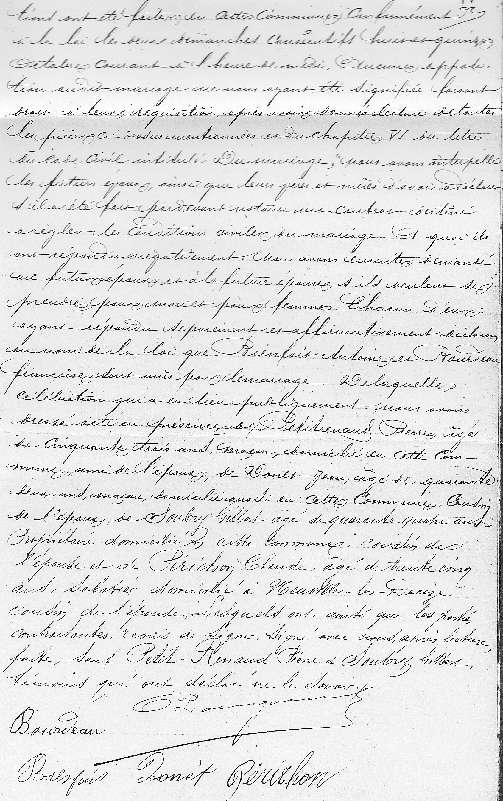 tions ont été faites en cette Commune, Conformément
à la loi les deux dimanches consécutifs huit et quinze
Octobre courant à l'heure de midi. D'aucune opposi-
tion audit mariage ne nous ayant été signifiée faisant
droit à leur réquisition après avoir donné lecture de toutes
les pièces ci-dessus mentionnées et du chapitre VI du titre
du Code Civil intitulé Du mariage, nous avons interpellé
les futurs époux, ainsi que leurs pères et mères d'avoir à déclarer
s'il a été fait par devant notaire un Contrat
à régler les conditions civiles du mariage. Et qu'ils
ont répondu négativement. Nous avons ensuite demandé
au futur époux et à la future épouse s'ils veulent se
prendre pour mari et pour femme. Chacun d'eux
ayant répondu séparément et affirmativement déclarons
au nom de la loi que Bienfait Antoine et Bourdeau
Françoise sont unis par le mariage. De laquelle
célébration qui a eu lieu publiquement nous avons
dressé acte en présence de Petit Renaud Pierre, âgé
de Cinquante trois ans, maçon, domicilié en cette Com-
mune, ami de l'époux, de Donet Jean, âgé de quarante
deux ans, maçon, domicilié aussi en cette Commune, Cousin
de l'époux, de Soubry Gilbert âgé de quarante quatre ans
Propriétaire domicilié en cette Commune cousin de
l'épouse et de Périchon Claude âgé de trente cinq
ans, Sabotier domicilié à les
cousin de l'épouse, lesquels ont, ainsi que les parties
contractantes, requis de signer, signé avec nous, après lecture
faite, sauf Petit Renaud Pierre et Soubry Gilbert
témoins qui ont déclaré ne le savoir
Bourdeau
Donet Périchon